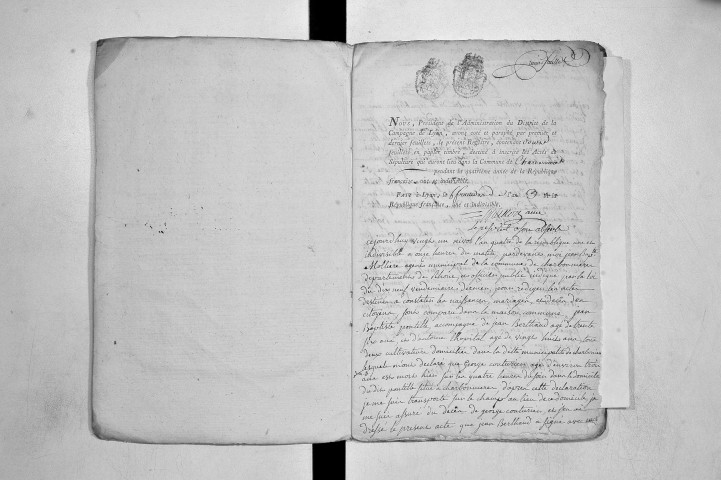 Nous, Président de l'Administration du District de la
Campagne de Lyon, avons coté et paraphé par premier et
dernier feuillets, le présent Registre, contenant
feuillets en papier timbré, destiné à inscrire les Actes de
Sépulture qui auront lieu dans la Commune de Charbonnière
pendant la quatrième année de la République
française, une et indivisible.
Fait à Lyon, le fructidor
République française, une et indivisible.
aujourd'huy vingt un nivos l'an quatre de la republique une et
indivisible a onze heures du matin pardevant moi jean
Molliere agent municipal de la commune de charbonniere
departement du Rhône, officier public par la loi
du dix neuf vendemiaire dernier, pour rediger les actes
destinés a constater les naissances, mariages, et deces des
citoyens, sont comparu dans la maison commune, jean
Baptiste pontille, accompagné de jean Berthaud agé de trente
six ans, et d'antoine hopital agé de vingt huit ans tous
deux cultivateurs domiciliés dans la ditte municipalité de charbonniere
lesquels m'ont declaré que George couturier agé d'environ trois
ans est mort hier sur les quatre heures du soir dans le domicile
du dit pontille situé a charbonniere d'apres cette declaration
je me suis transporté sur le champ au lieu de ce domicile, je
me suis assuré du déces de george couturier, et j'en ai
dressé le present acte que jean Berthaud a signé avec moi